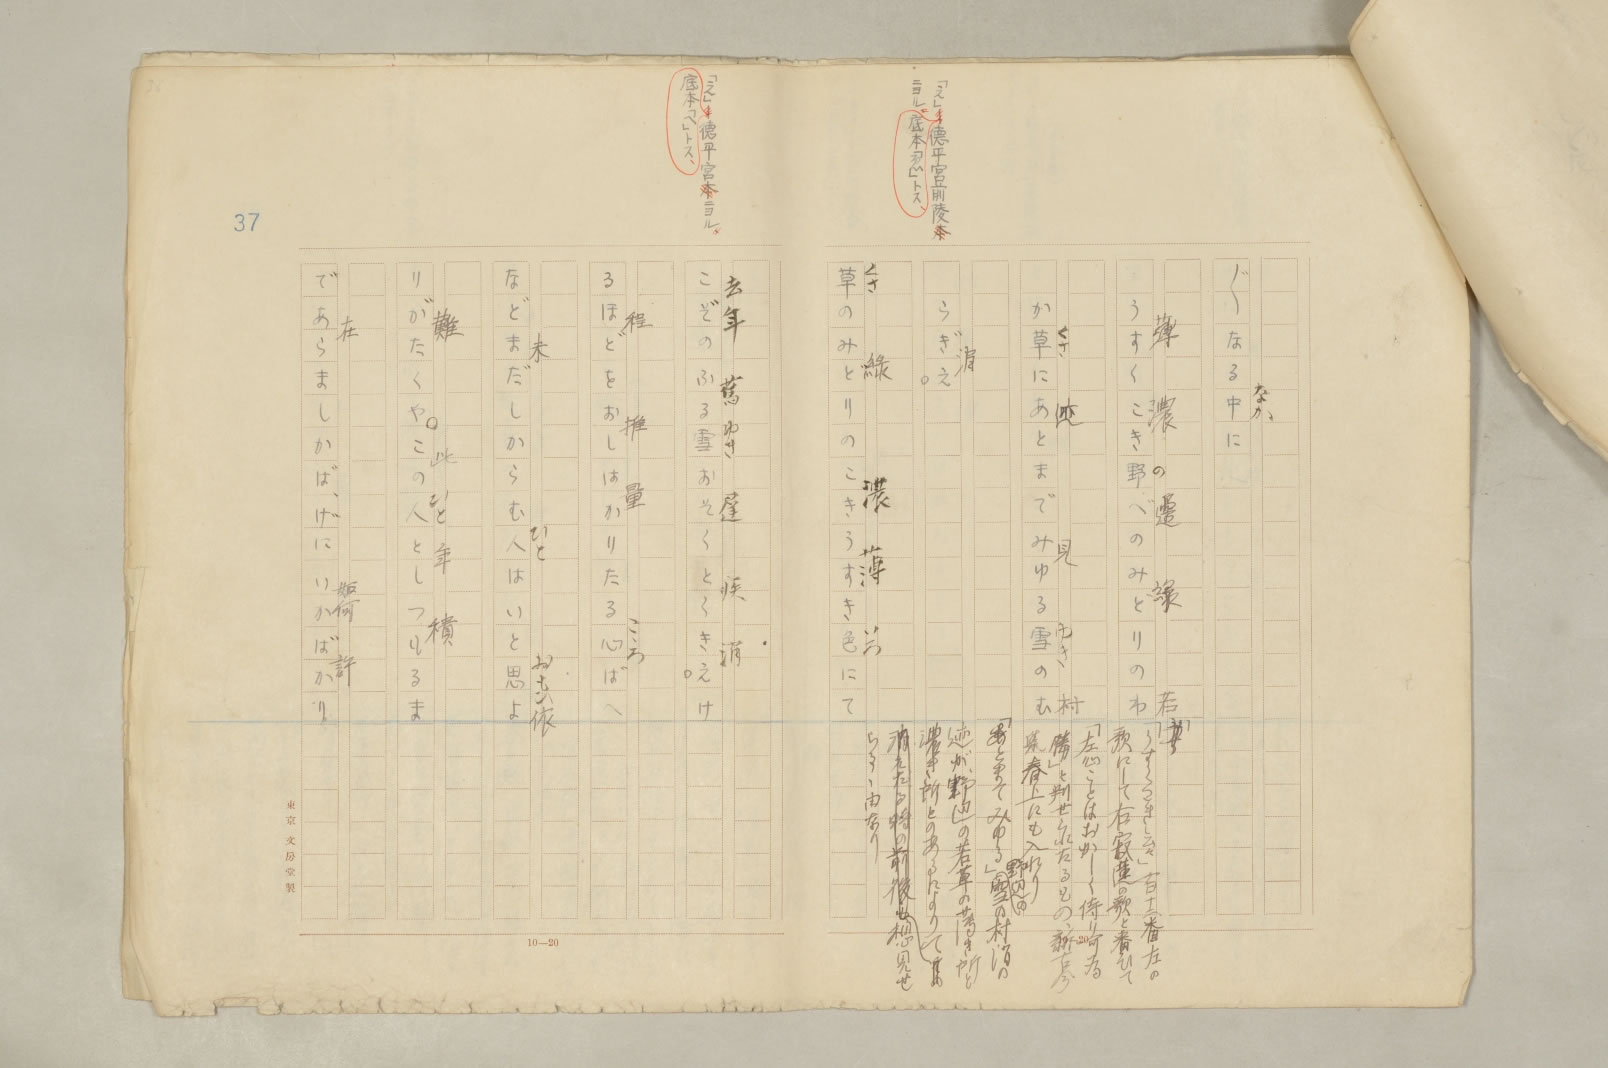 「え」ま徳平宮前陵本
ニヨル。底本「忍」トス、
〴〵なる中に
なか
うすくこき野べのみとりのわ
薄 濃 の 邊 緑 若
か草にあとまでみゆる雪のむ
くさ 迹 見 ゆき 村
らぎえ
消
草のみとりのこきうすき色にて
くさ 緑 濃 薄 いろ
歌にして右寂蓮の歌と番ひて
「左心ことはおかしく侍り可為
勝」と判せられたるもの、新古今
集春上にも入れり
「あとまてみゆる」雪の村消の
野辺の
迹が、野辺の若草の薄き所と
濃き所とのあるによりて
消えたる時の前後も想見せ
らるゝ由なり
「え」ま徳平宮本ニヨル。
底本「へ」トス、
こぞのふる雪おそくとくきえけ
去年 舊 ゆき 遅 疾 消
るほどをおしはかりたる心ばへ
程 推 量 こころ
などまだしからむ人はいと思よ
未 ひと おもひ 依
りがたくや。この人としつもるま
難 此 ひと 年 積
であらましかば、げにいかばかり
在 如何 許
37
東京 文房堂製
10—20